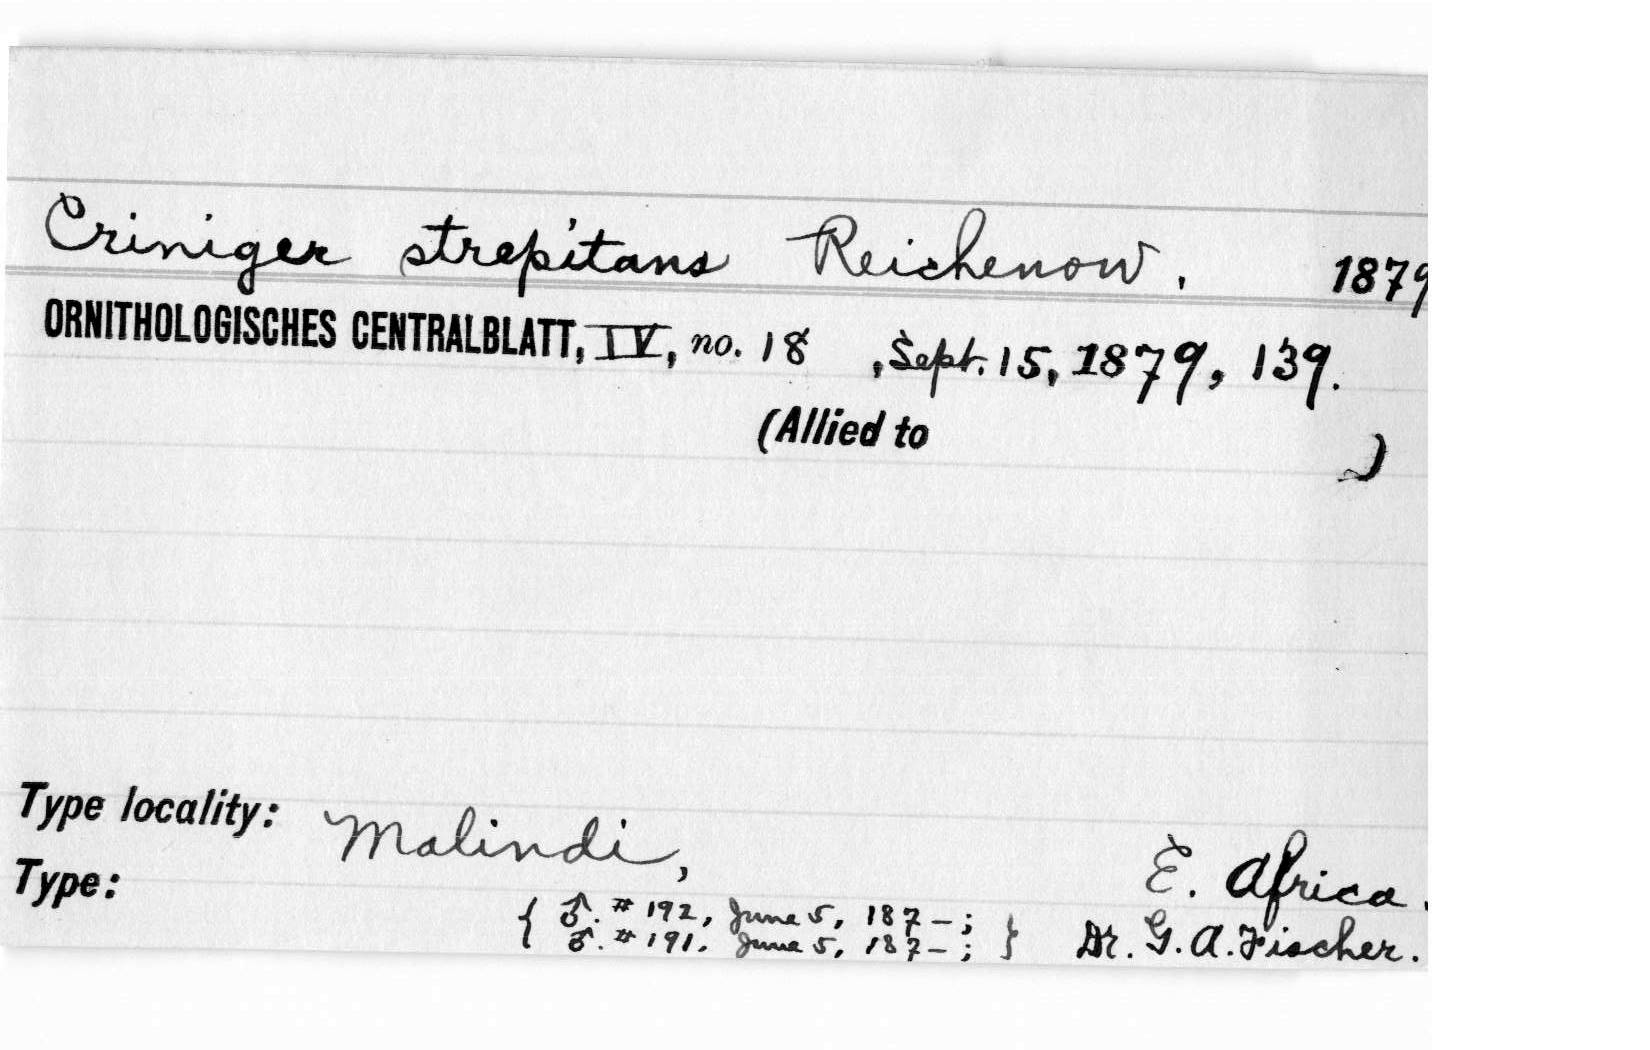 Criniger strepitans Reichenow, 1879
ORNITHOLOGISCHES CENTRALBLATT, IV, no. 18, Sept. 15, 1879, 139.
(Allied to )
Type locality: Malindi, E. Africa.
Type:
{ ♂. # 192, June 5, 187-; } Dr. G. A. Fischer.
♂. # 191. June 5, 187-;